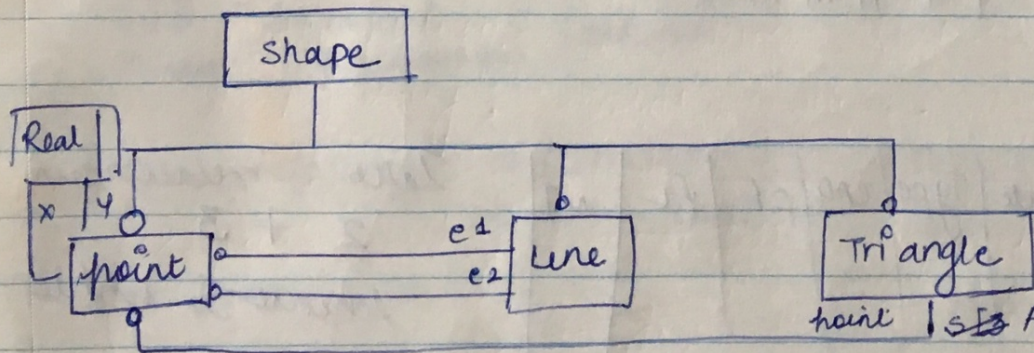 shape
Real
x y
point
e1
e2
Line
Triangle
point